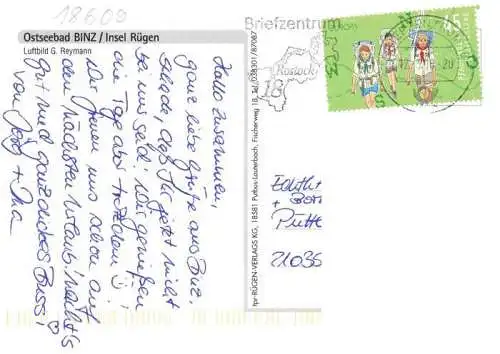 18609
Ostseebad BINZ / Insel Rügen
Luftbild G. Reymann
Hallo zusammen,
ganz liebe Grüße aus Binz.
Schade, daß Ihr jetzt nicht
bei uns seid! Wir genießen
die Tage aber trotzdem!
Wir freuen uns schon auf
den nächsten Urlaub! Macht's
gut und ganz dickes Bussi,
von Jörg + Ina
tpr-RÜGEN-VERLAGS KG, 18581 Putbus-Lauterbach, Fischerweg 1B, Tel. 038301/87067
Briefzentrum
Rostock
18
45
Edith +
+
Putte
21035